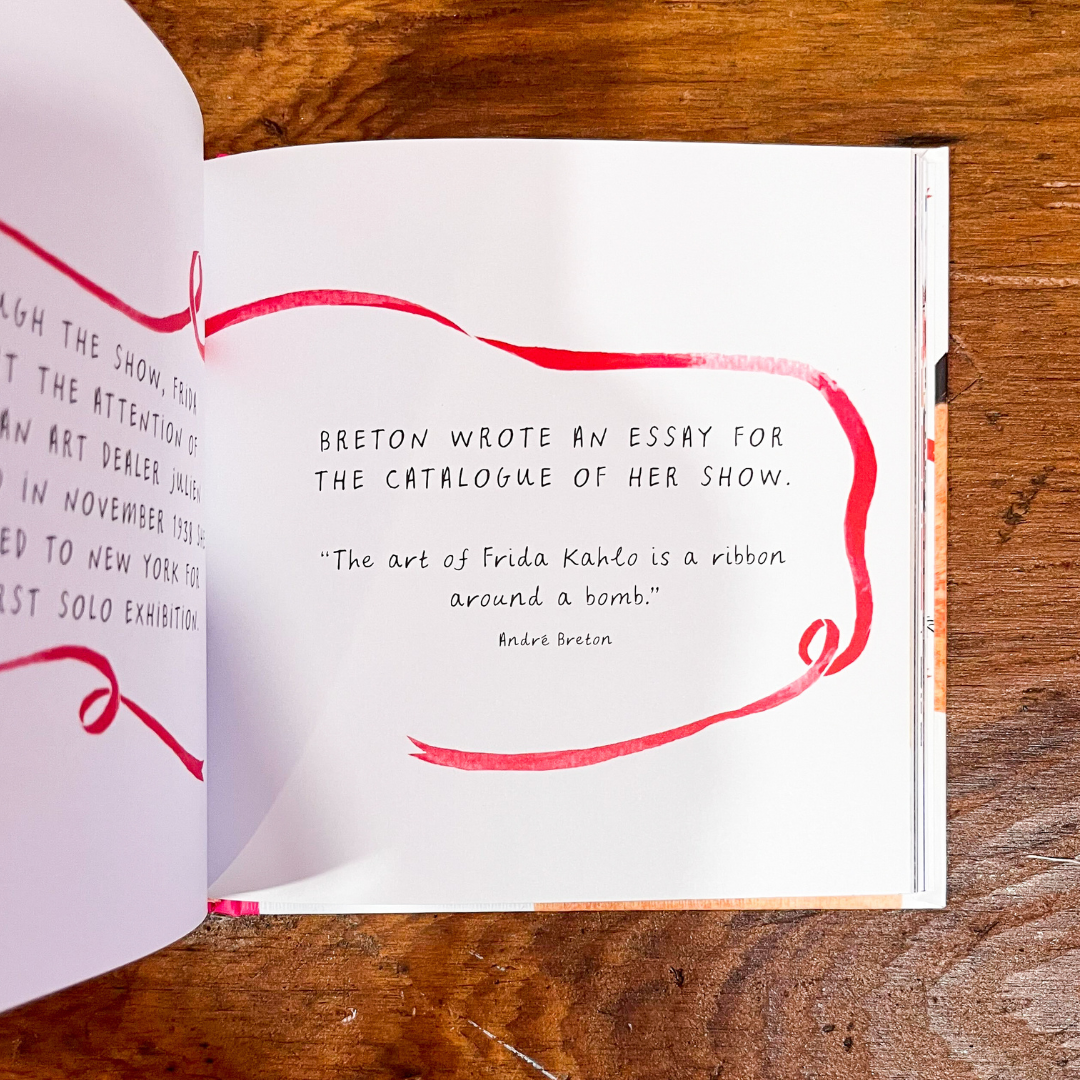 THE SHOW, FRIDA
THE ATTENTION OF
AN ART DEALER JULIEN
IN NOVEMBER 1938
TO NEW YORK FOR
SOLO EXHIBITION.
BRETON WROTE AN ESSAY FOR
THE CATALOGUE OF HER SHOW.
“The art of Frida Kahlo is a ribbon
around a bomb.”
André Breton